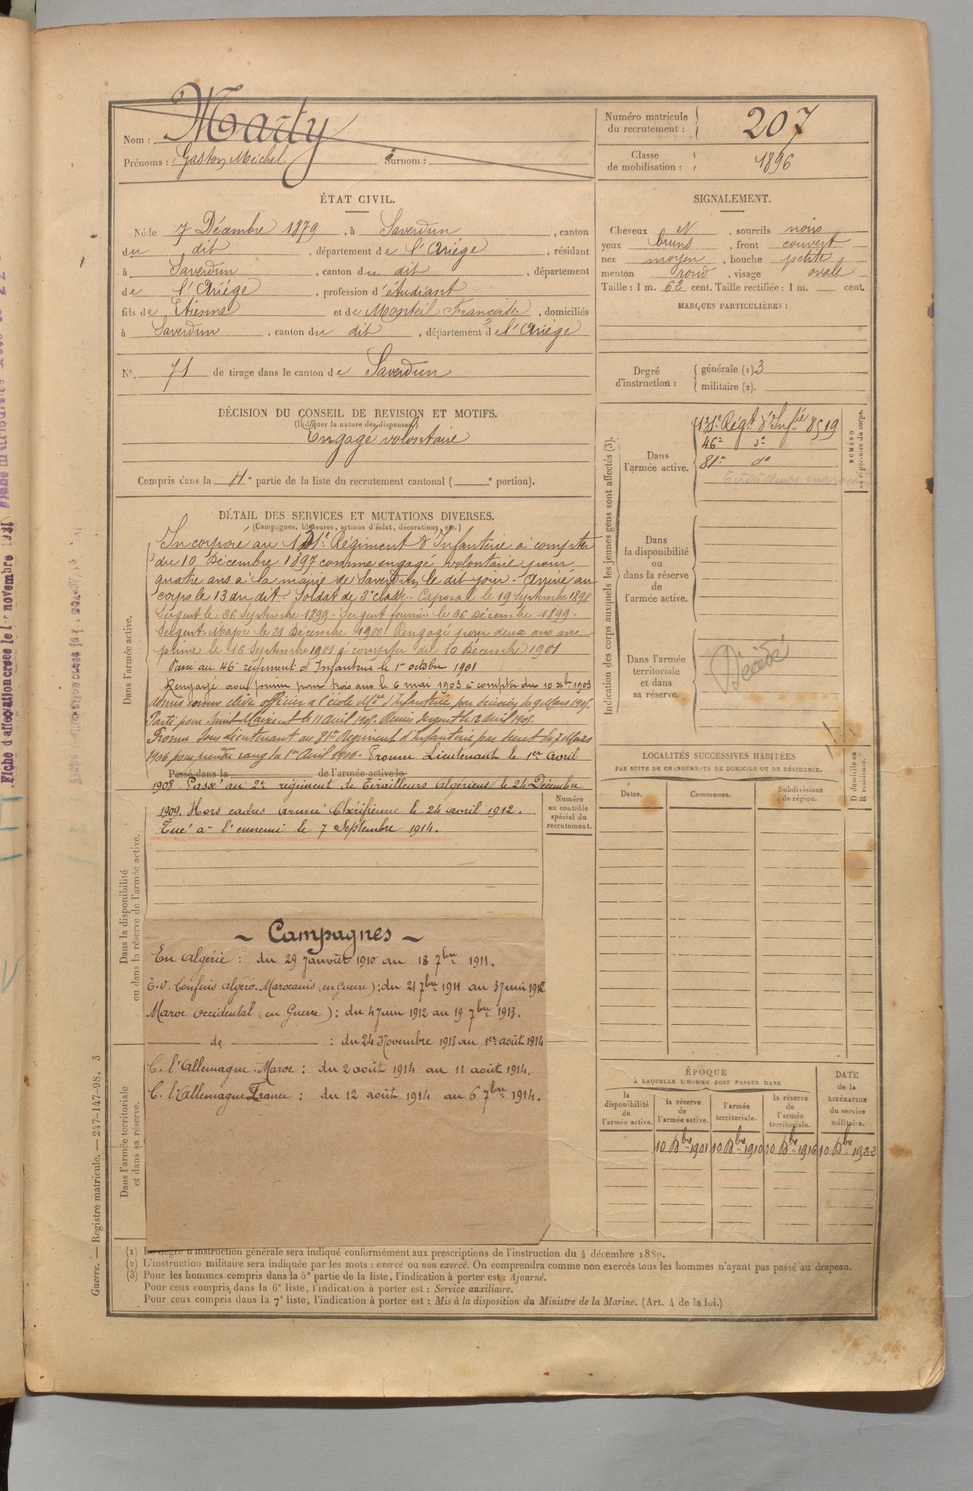 Nom : Marty
Prénoms : Gaston Michel Surnom :
Numéro matricule du recrutement : 207
Classe de mobilisation : 1896
ÉTAT CIVIL.
Né le 7 Décembre 1879, à Saverdun, canton
du dit, département de l'Ariège, résidant
à Saverdun, canton du dit, département
de l'Ariège, profession d'étudiant
fils de Etienne et de Françoise, domiciliés
à Saverdun, canton du dit, département de l'Ariège
N° 71 de tirage dans le canton de Saverdun
SIGNALEMENT.
Cheveux N, sourcils noirs
yeux bruns, front couvert
nez moyen, bouche petite
menton rond, visage ovale
Taille : 1 m. 62 cent. Taille rectifiée : 1 m. cent.
MARQUES PARTICULIÈRES :
Degré d'instruction : générale (1) 3
militaire (2).
DÉCISION DU CONSEIL DE REVISION ET MOTIFS.
(Indiquer la nature des dispenses)
Engagé volontaire
Compris dans la 4e partie de la liste du recrutement cantonal ( e portion).
Indication des corps auxquels les jeunes gens sont affectés (3).
Dans l'armée active.
Régt d'Infie 8519
46e do
81e do
NUMÉRO au répertoire du corps.
Dans la disponibilité ou dans la réserve de l'armée active.
Dans l'armée territoriale et dans sa réserve.
Décédé
DÉTAIL DES SERVICES ET MUTATIONS DIVERSES.
(Campagnes, blessures, actions d'éclat, décorations, etc.)
Dans l'armée active.
Incorporé au Régiment d'Infanterie à compter
du 10 Décembre 1897 comme engagé volontaire pour
quatre ans à la mairie de Saverdun le dit jour. Arrivé au
corps le 13 du dit Soldat de 2e classe. Caporal le 19 Septembre 1898
Sergent le 26 Septembre 1899. Sergent fourrier le 26 Décembre 1899.
Sergent-Major le 21 Décembre 1900. Rengagé pour deux ans avec
prime le 16 Septembre 1901 à compter du 10 Décembre 1901
Passé au 46e régiment d'Infanterie le 1er octobre 1901
Rengagé avec prime pour trois ans le 6 mai 1903 à compter du 10 Xbre 1903
Admis comme élève officier à l'école Mre d'Infanterie par décision du 9 Mars
Parti pour Saint-Maixent le 11 Avril
Promu Sous-Lieutenant au 81e Régiment d'Infanterie par décret du Mars
1906 pour prendre rang du 1er Avril 1906. Promu Lieutenant le 1er avril
Passé dans la de l'armée active le
1908 Passé au 2e régiment de Tirailleurs algériens le 24 Décembre
1909. Hors cadres armée Chérifienne le 24 avril 1912.
Tué à l'ennemi le 7 Septembre 1914.
Numéro au contrôle spécial du recrutement.
Dans la disponibilité ou dans la réserve de l'armée active.
Dans l'armée territoriale et dans sa réserve.
~ Campagnes ~
En Algérie : du 29 Janvier 1910 au 18 7bre 1911.
Confins algéro-Marocains (en Guerre) : du 21 7bre 1911 au 3 juin 1912
Maroc Occidental (en Guerre) : du 4 juin 1912 au 19 7bre 1913.
do : du 24 Novembre 1913 au 1er août 1914
C. l'Allemagne Maroc : du 2 août 1914 au 11 août 1914.
C. l'Allemagne France : du 12 août 1914 au 6 7bre 1914.
LOCALITÉS SUCCESSIVES HABITÉES
PAR SUITE DE CHANGEMENTS DE DOMICILE OU DE RÉSIDENCE.
Dates. Communes. Subdivisions de région. D domicile ou R résidence.
ÉPOQUE
À LAQUELLE L'HOMME DOIT PASSER DANS
la disponibilité de l'armée active.
la réserve de l'armée active.
l'armée territoriale.
la réserve de l'armée territoriale.
DATE de la LIBÉRATION du service militaire.
10 Xbre 1901 10 Xbre 1910 10 Xbre 1916 10 Xbre 1922
(1) Le degré d'instruction générale sera indiqué conformément aux prescriptions de l'instruction du 4 décembre 1889.
(2) L'instruction militaire sera indiquée par les mots : exercé ou non exercé. On comprendra comme non exercés tous les hommes n'ayant pas passé au drapeau.
(3) Pour les hommes compris dans la 5e partie de la liste, l'indication à porter est : Ajourné.
Pour ceux compris dans la 6e liste, l'indication à porter est : Service auxiliaire.
Pour ceux compris dans la 7e liste, l'indication à porter est : Mis à la disposition du Ministre de la Marine. (Art. 4 de la loi.)
Guerre. — Registre matricule. — 247-147-98. 3
Fiche d'affectation créée le 1er novembre 1921